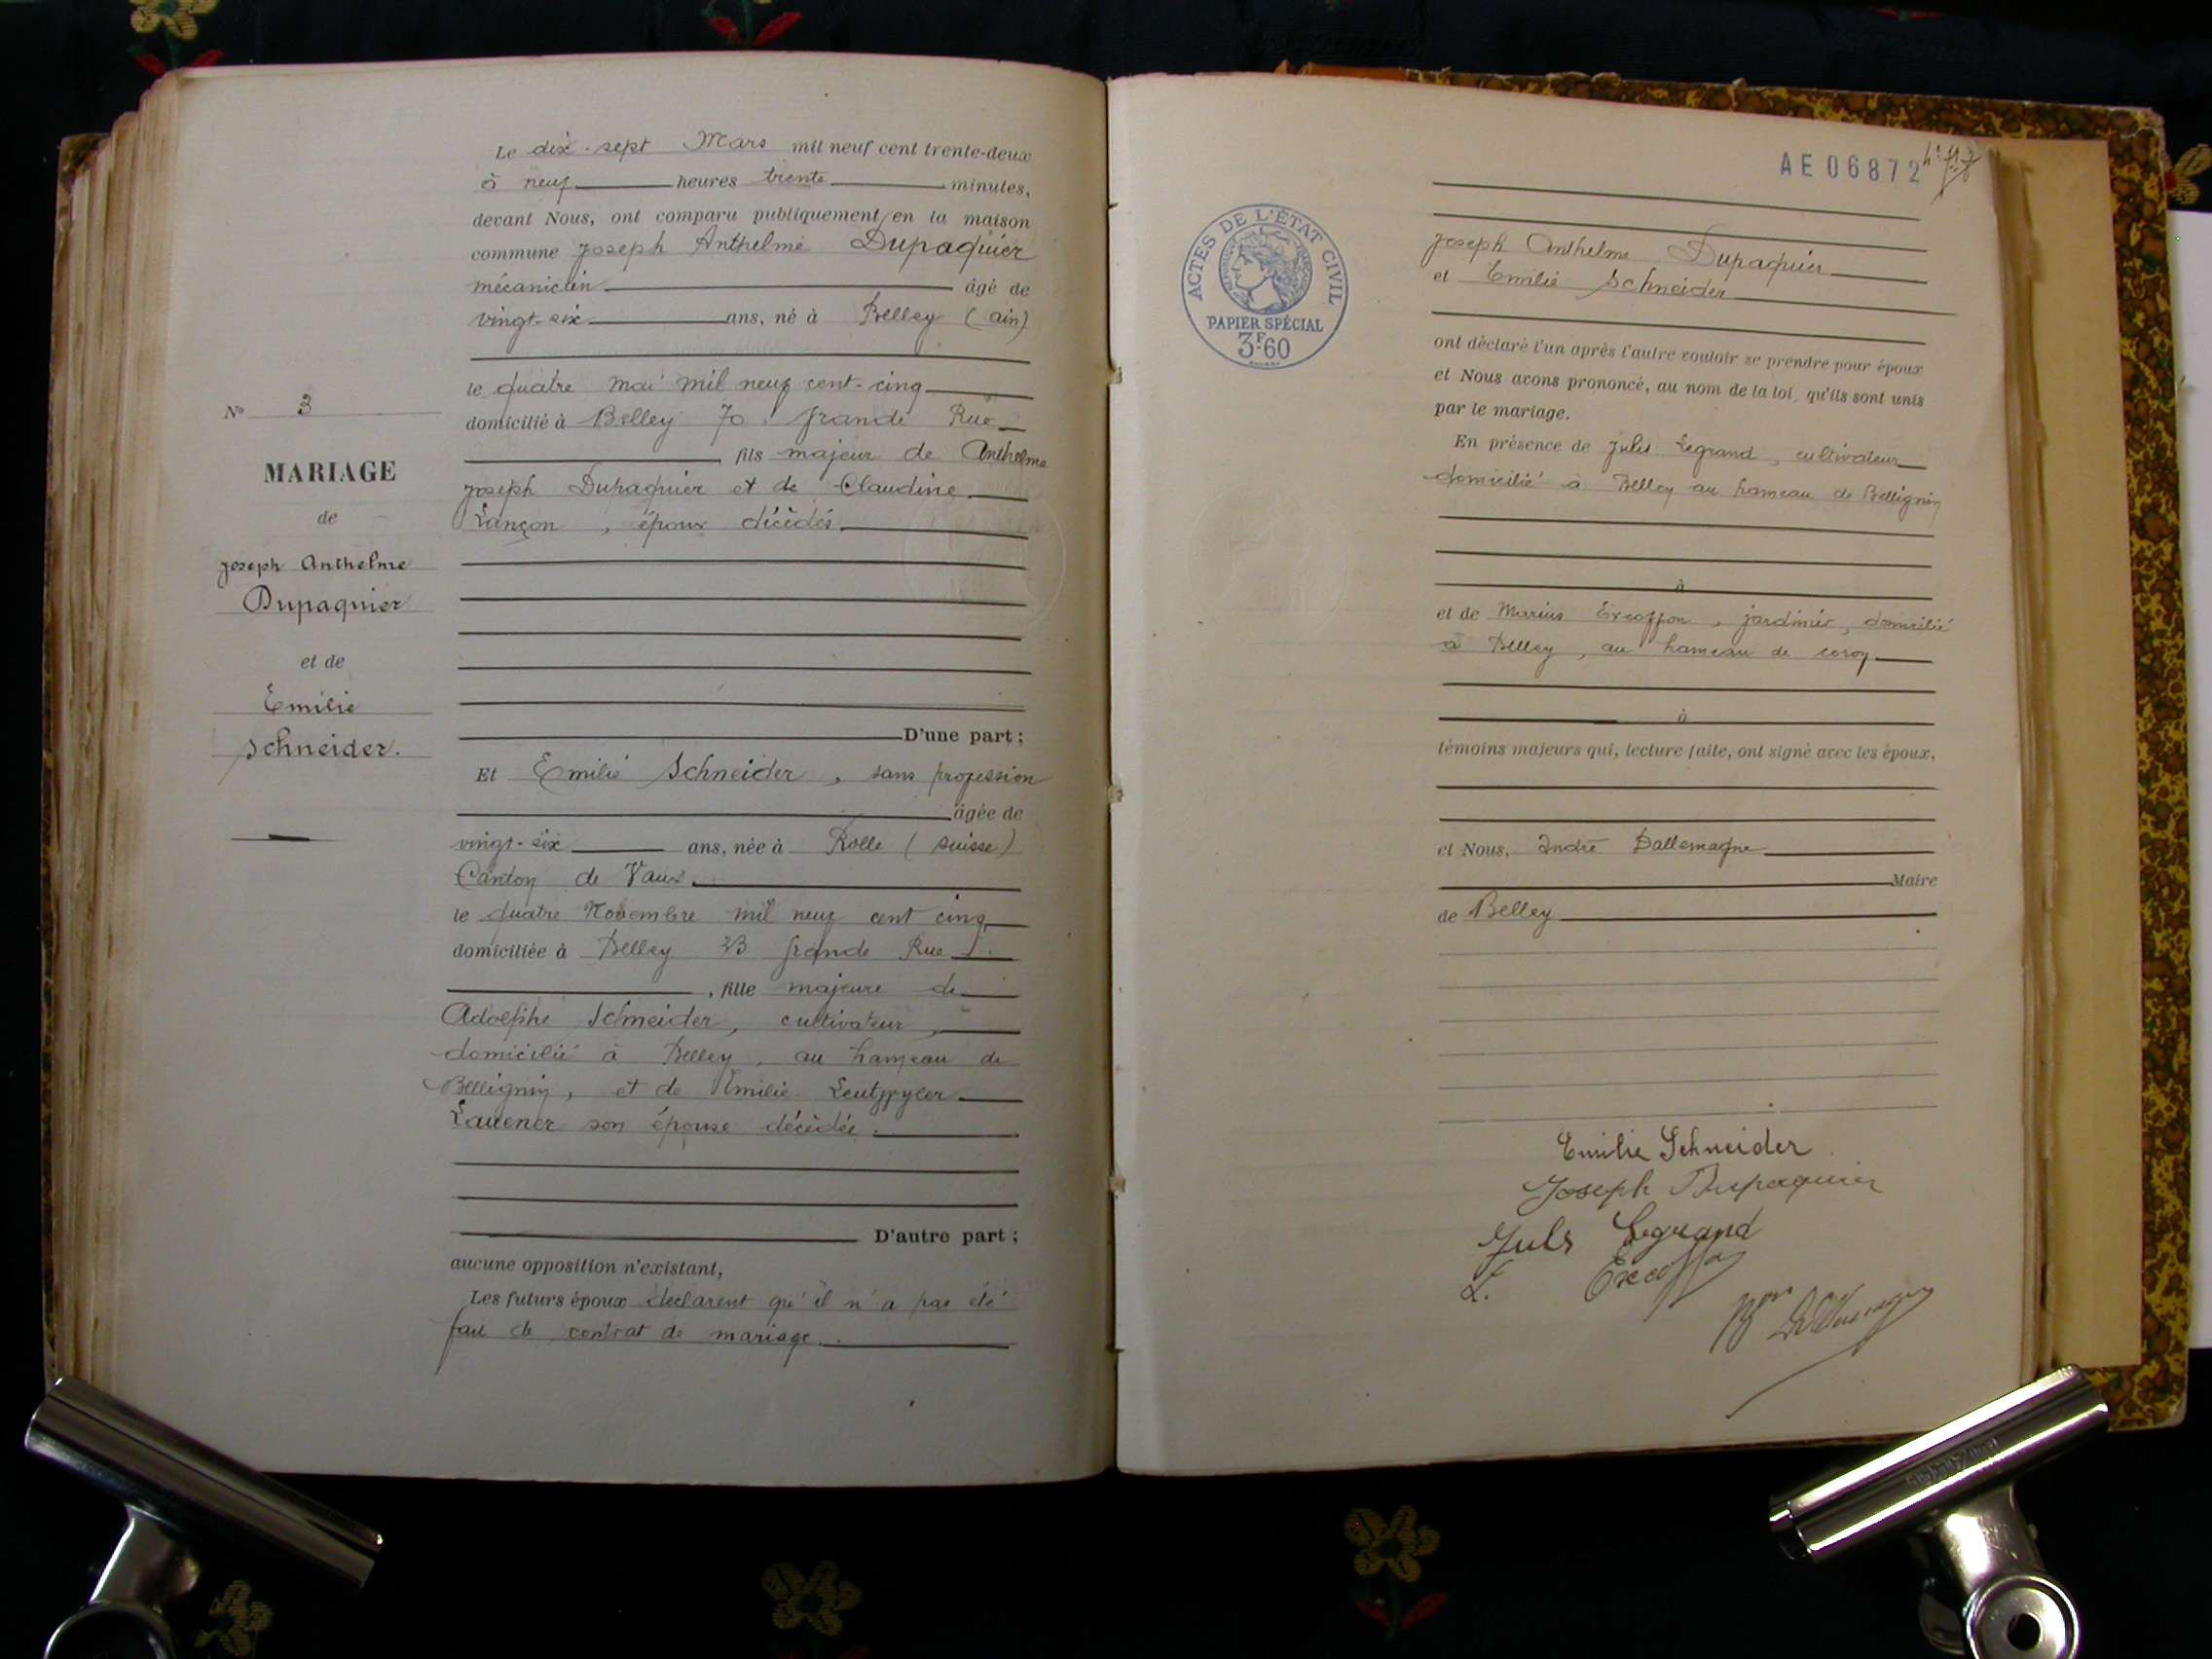 Le dix-sept Mars mil neuf cent trente-deux
à neuf heures trente minutes,
devant Nous, ont comparu publiquement en la maison
commune Joseph Anthelme Dupaquier
mécanicien âgé de
vingt-six ans, né à Belley (Ain)
le quatre mai mil neuf cent-cinq
domicilié à Belley 70 grande Rue
fils majeur de Anthelme
Joseph Dupaquier et de Claudine
Lançon, époux décédés.
D'une part;
Nº 3
MARIAGE
de
Joseph Anthelme
Dupaquier
et de
Emilie
Schneider.
Et Emilie Schneider, sans profession
âgée de
vingt-six ans, née à Rolle (Suisse)
Canton de Vaux
le quatre Novembre mil neuf cent cinq
domiciliée à Belley 23 grande Rue
, fille majeure de
Adolphe Schneider, cultivateur,
domicilié à Belley, au hameau de
Bellignin, et de Emilie
Lauener son épouse décédée.
D'autre part;
aucune opposition n'existant,
Les futurs époux déclarent qu'il n'a pas été
fait de contrat de mariage.
AE 06872
ACTES DE L'ÉTAT CIVIL
PAPIER SPÉCIAL
3F.60
Joseph Anthelme Dupaquier
et Emilie Schneider
ont déclaré l'un après l'autre vouloir se prendre pour époux
et Nous avons prononcé, au nom de la loi, qu'ils sont unis
par le mariage.
En présence de Jules Legrand, cultivateur
domicilié à Belley au hameau de Bellignin
à
et de Marius Excoffon, jardinier, domicilié
à Belley, au hameau de coron
à
témoins majeurs qui, lecture faite, ont signé avec les époux,
et Nous, André Dallemagne
Maire
de Belley
Emilie Schneider
Joseph Dupaquier
Juls Legrand
Excoffon
Bon Dallemagne